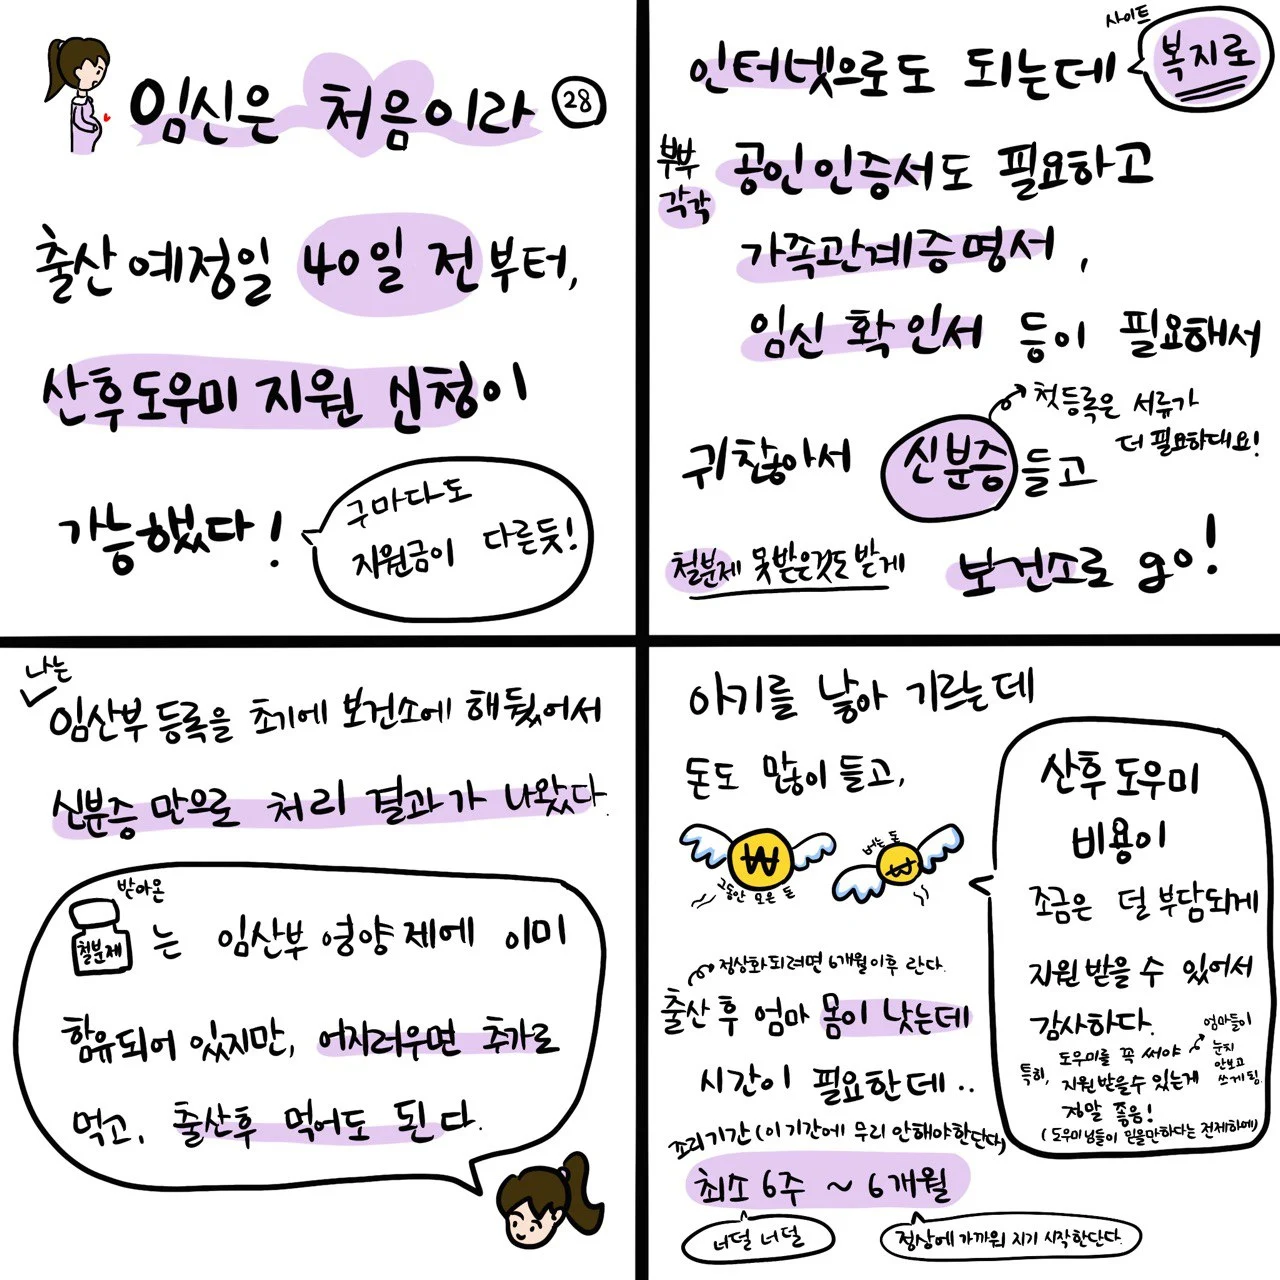 임신은 처음이라 28
출산예정일 40일 전부터,
산후도우미 지원 신청이
가능했다!
구마다도
지원금이 다른듯!
사이트
인터넷으로도 되는데 복지로
부부
각각
공인인증서도 필요하고
가족관계증명서,
임신 확인서 등이 필요해서
첫등록은 서류가
더 필요하대요!
귀찮아서 신분증 들고
철분제 못받은것도 받게 보건소로 go!
나는
임산부 등록을 초기에 보건소에 해뒀어서
신분증 만으로 처리 결과가 나왔다.
받아온
철분제 는 임산부 영양제에 이미
함유되어 있지만, 어지러우면 추가로
먹고, 출산후 먹어도 된다.
아기를 낳아 기르는데
돈도 많이 들고,
₩
그동안 모은 돈
버는 돈
₩
산후도우미
비용이
조금은 덜 부담되게
지원 받을 수 있어서
감사하다.
특히, 도우미를 꼭 써야
지원받을수 있는게
정말 좋음!
엄마들이
눈치
안보고
쓰게됨.
(도우미님들이 믿을만하다는 전제하에)
정상화되려면 6개월이후 란다.
출산 후 엄마 몸이 낫는데
시간이 필요한데..
조리기간(이기간에 무리 안해야한단다)
최소 6주 ~ 6개월
너덜 너덜
정상에 가까워 지기 시작한단다.